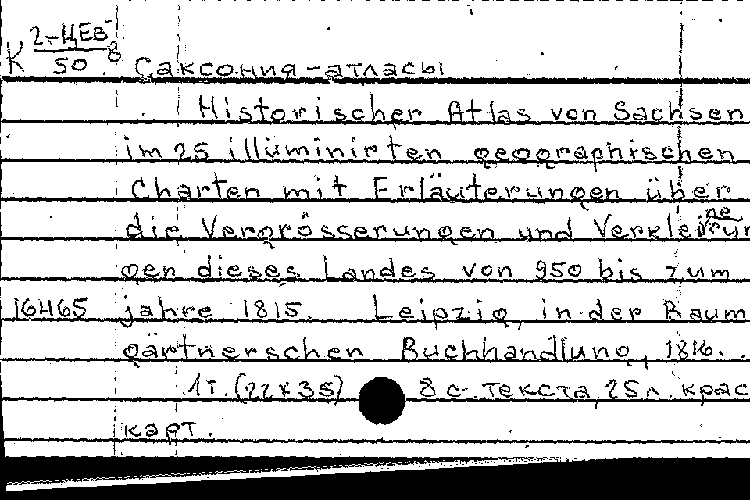 К 2-ЦЕВ 8
50 Саксония-атласы
Historischer Atlas von Sachsen
im 25 illüminirten geographischen
Charten mit Erläuterungen über
die Vergrösserungen und Verkleinerun
gen dieses Landes von 950 bis zum
16465 jahre 1815. Leipzig, in der Baum
gärtnerschen Buchhandlung, 1816.
1т. (22x35) 8 с. текста, 25 л. крас
карт.